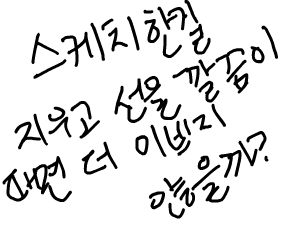 스케치한걸
지우고 선을 깔끔이
따면 더 이쁘지
않을까?